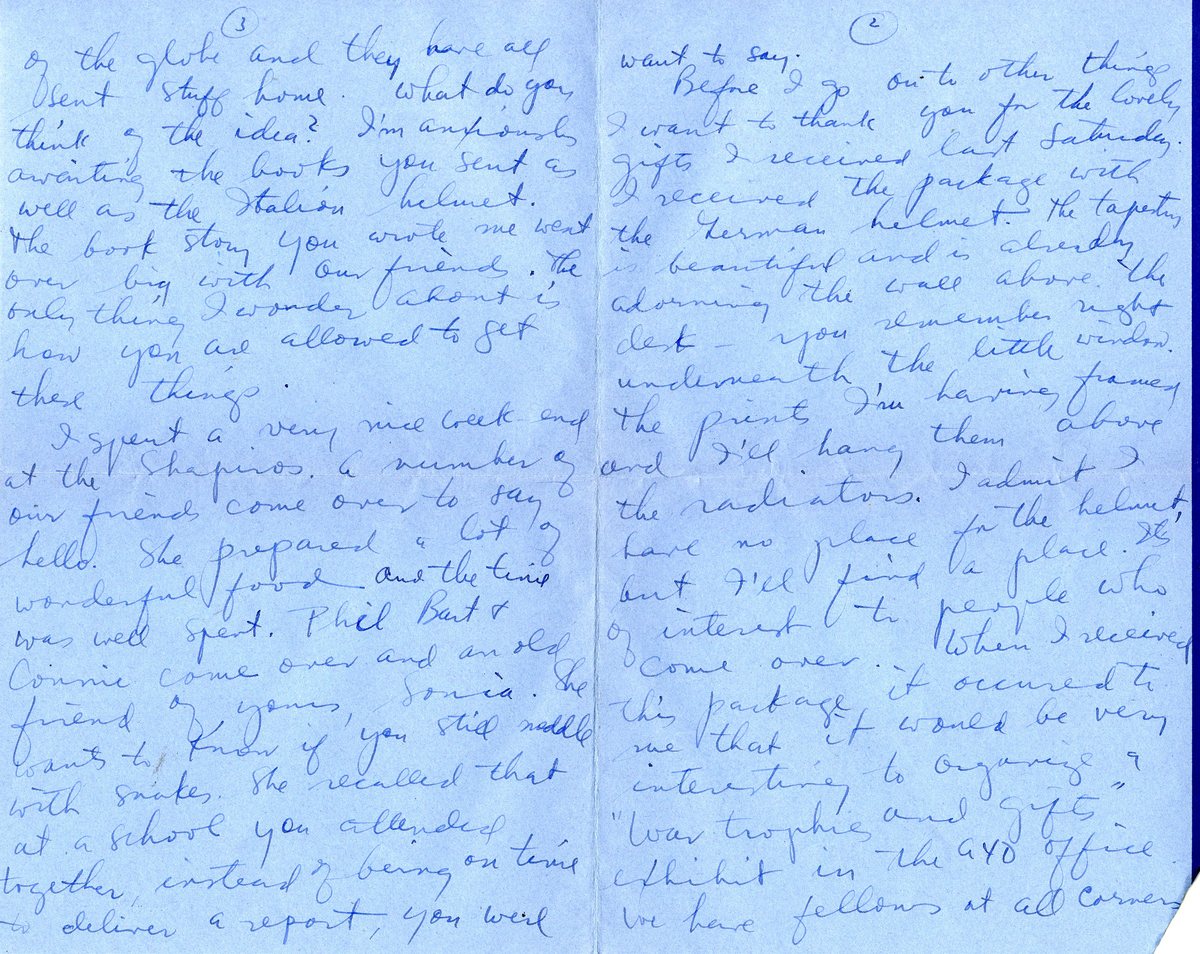 2
want to say.
Before I go on to other things
I want to thank you for the lovely
gifts I received last Saturday.
I received the package with
the German helmet. The tapestry
is beautiful and is already
adorning the wall above the
desk — you remember right
underneath the little window.
the prints I'm having framed
and I'll hang them above
the radiators. I admit I
have no place for the helmet,
but I'll find a place. It's
of interest to people who
come over. When I received
this package it occured to
me that it would be very
interesting to organize a
"War trophies and gifts"
exhibit in the AYD office
We have fellows at all corners
3
of the globe and they have all
sent stuff home. What do you
think of the idea? I'm anxiously
awaiting the books you sent as
well as the Italian helmet.
The book story you wrote me went
over big with our friends. The
only thing I wonder about is
how you are allowed to get
these things.
I spent a very nice week-end
at the Shapiros. A number of
our friends come over to say
hello. She prepared a lot of
wonderful food and the time
was well spent. Phil Bart &
Connie come over and an old
friend of yours, Sonia. She
wants to know if you still meddle
with snakes. She recalled that
at a school you attended
together, instead of being on time
to deliver a report, you were